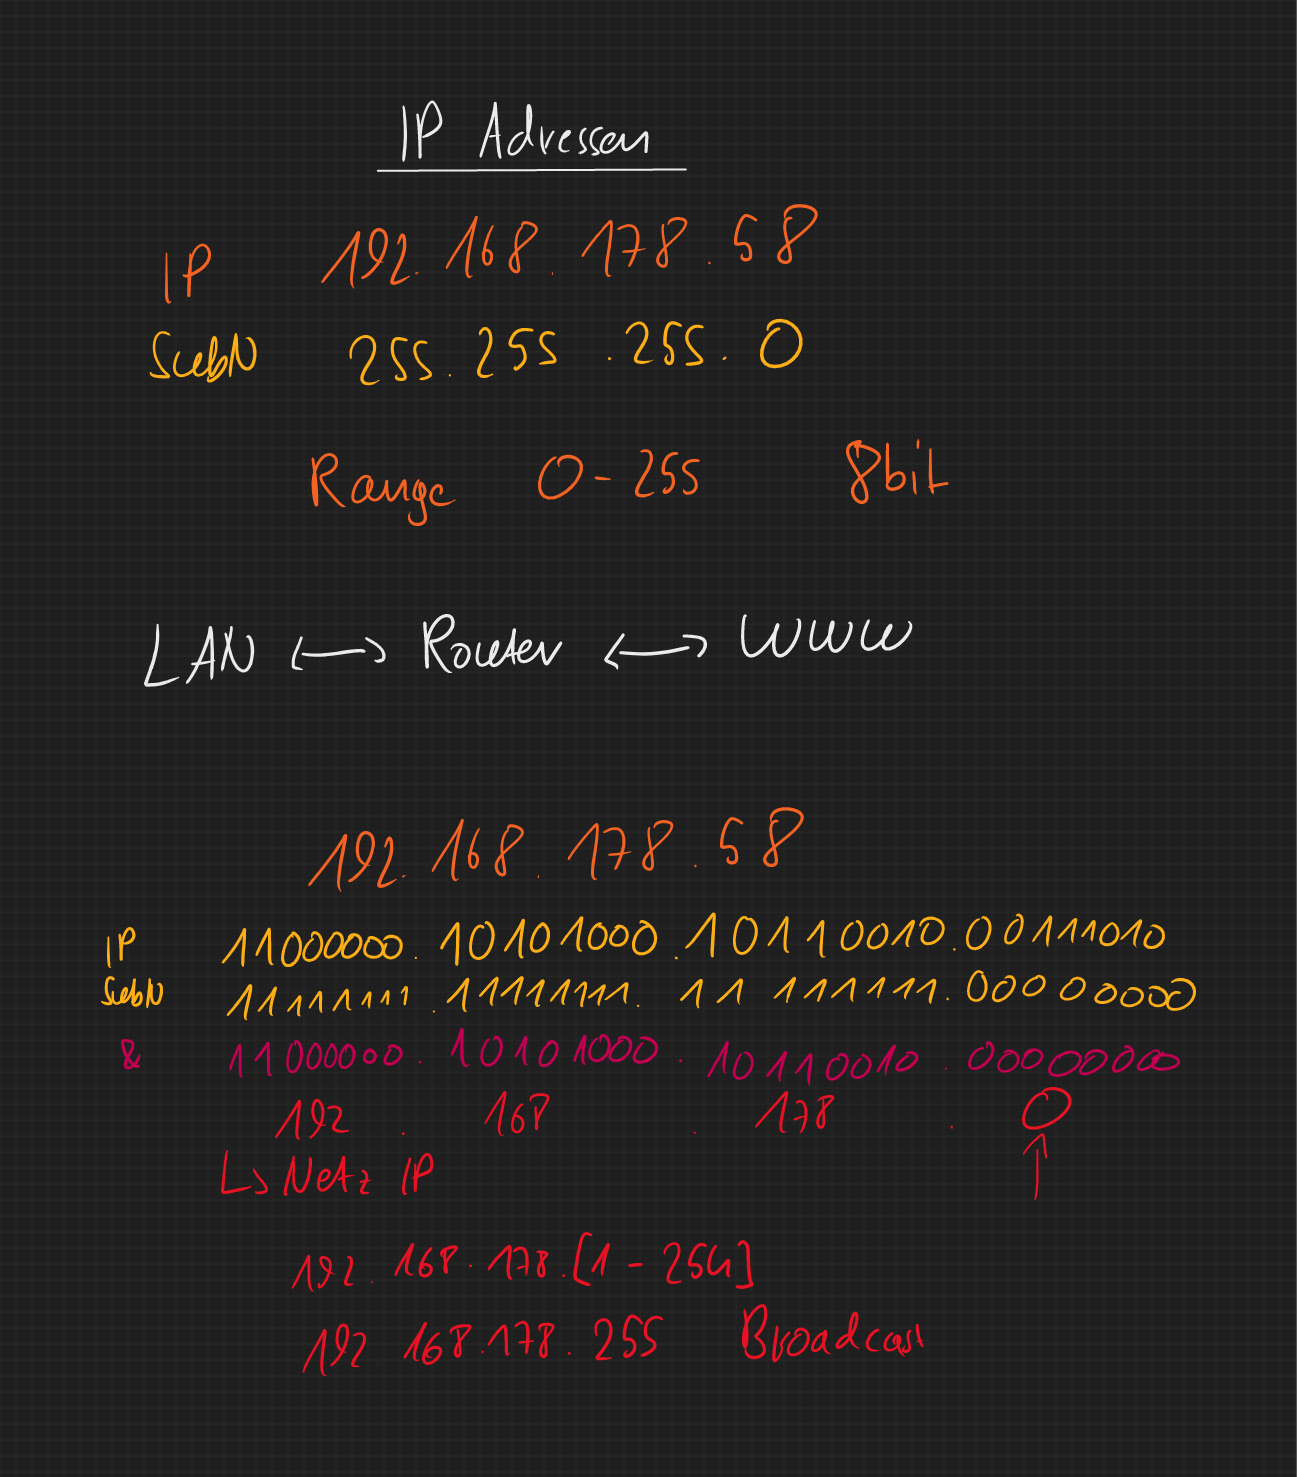 IP Adressen
IP 192.168.178.58
SubN 255.255.255.0
Range 0-255 8bit
LAN ↔ Router ↔ WWW
192.168.178.58
IP 11000000.10101000.10110010.00111010
SubN 11111111.11111111.11111111.00000000
& 11000000.10101000.10110010.00000000
192.168.178.0
↳ Netz IP ↑
192.168.178.[1-254]
192 168.178.255 Broadcast